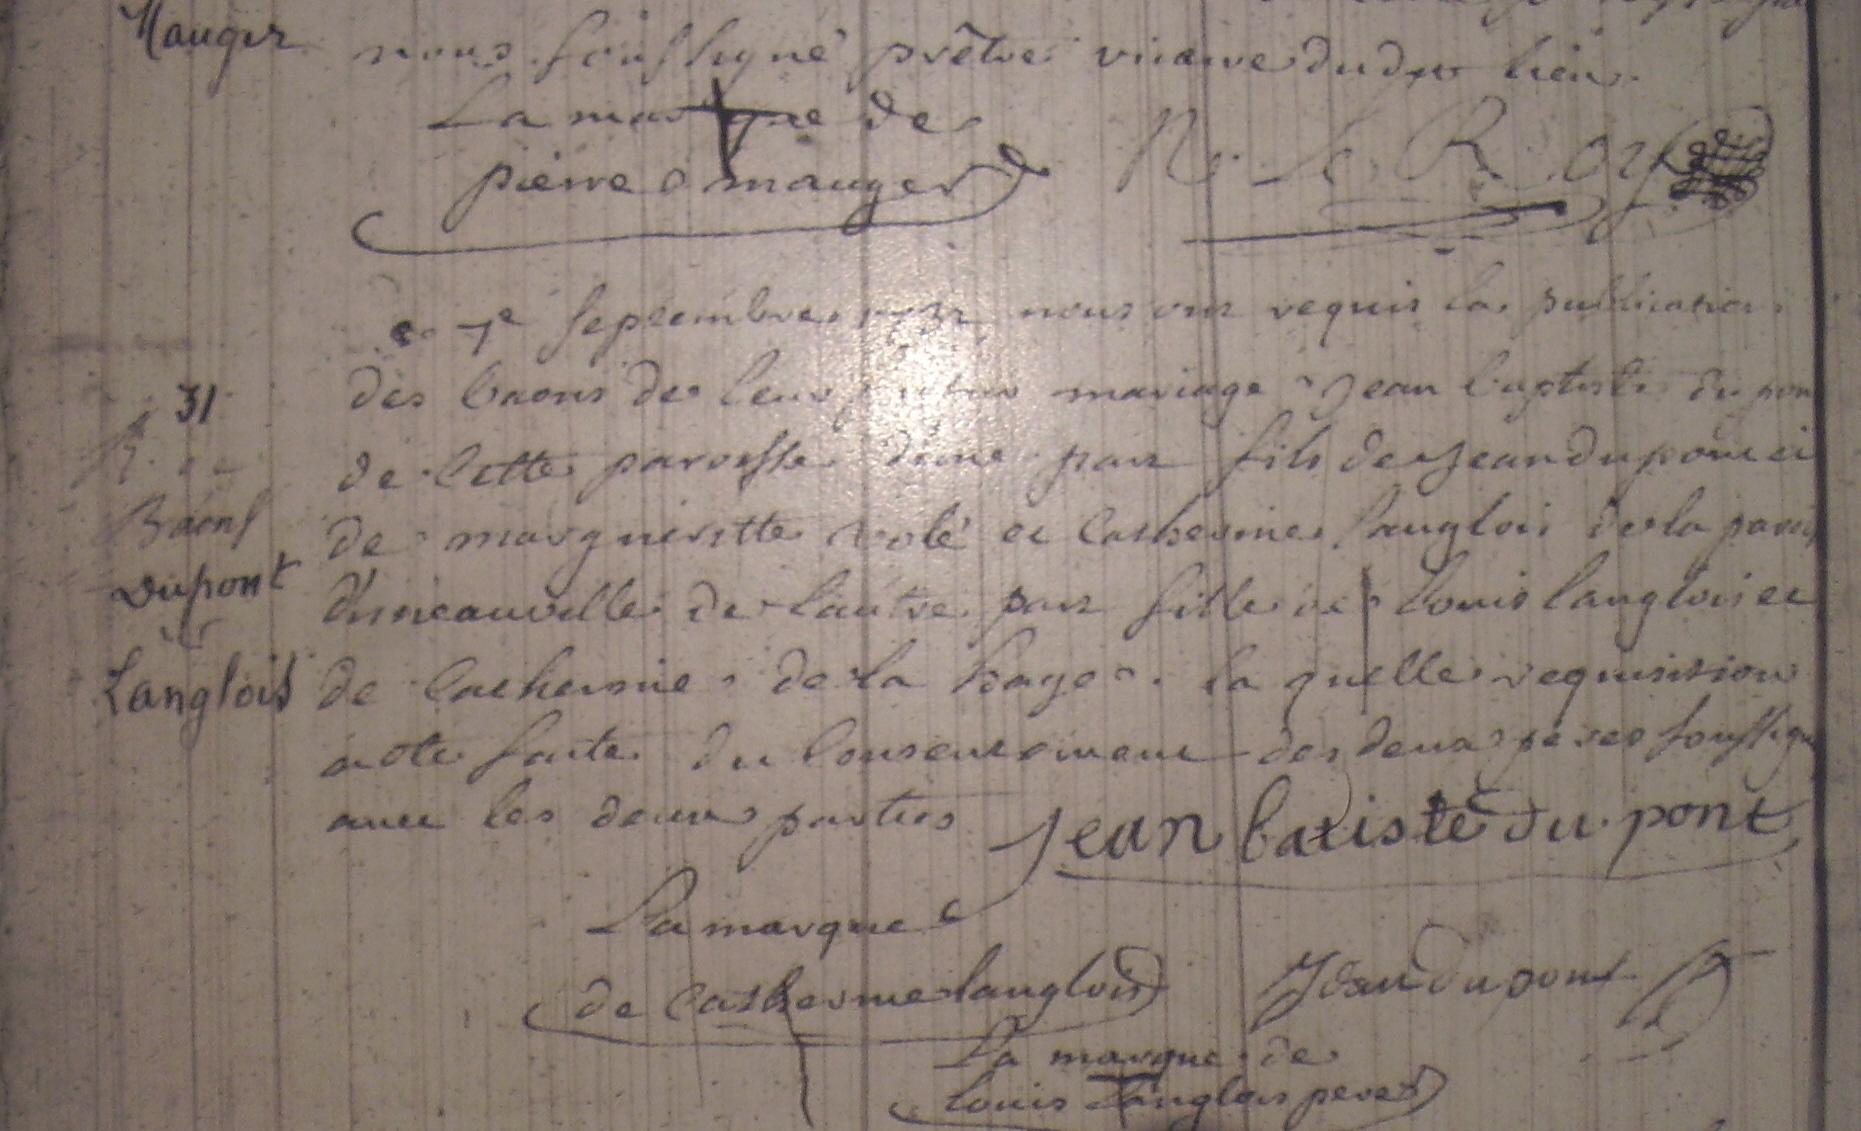 Mauger
nous soussigné prêtre vicaire dudit lieu.
La marque de
pierre mauger
N. Le Roy
ce 7e septembre 1732 nous ont requis la publication
31
des baons de leur futur mariage Jean baptiste du pon
de cette paroisse d'une part fils de Jean dupont et
Baons
de margueritte volé et Catherine langlois de la paroi
Dupont
d'imeauville de l'autre part fille de louis langlois et
Langlois
de Catherine de la haye. la quelle requisition
a ete faite du Consentement des deux peres soussign
avec les deux parties
Jean batiste du pont
La marque
de Catherine langlois
Jean dupont
La marque de
louis langlois pere